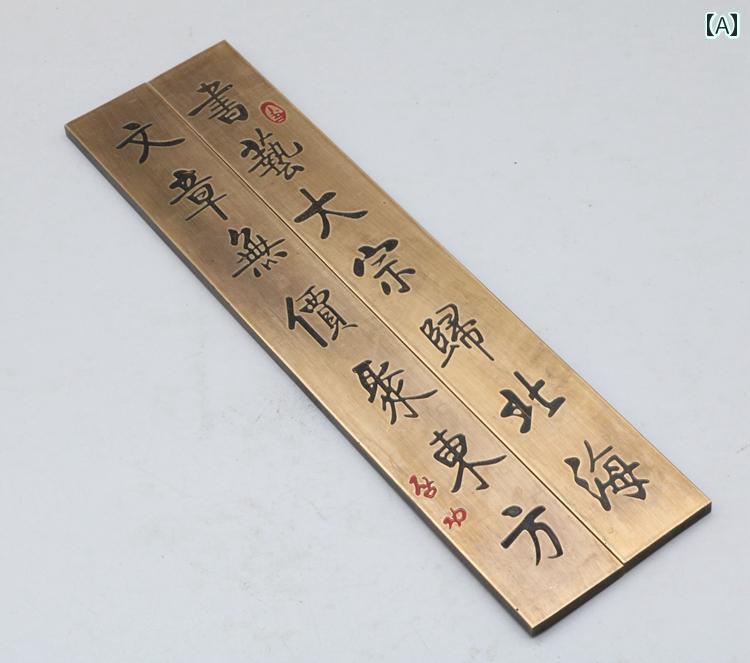 書藝大宗歸北海
文章無價聚東方
启功
【A】